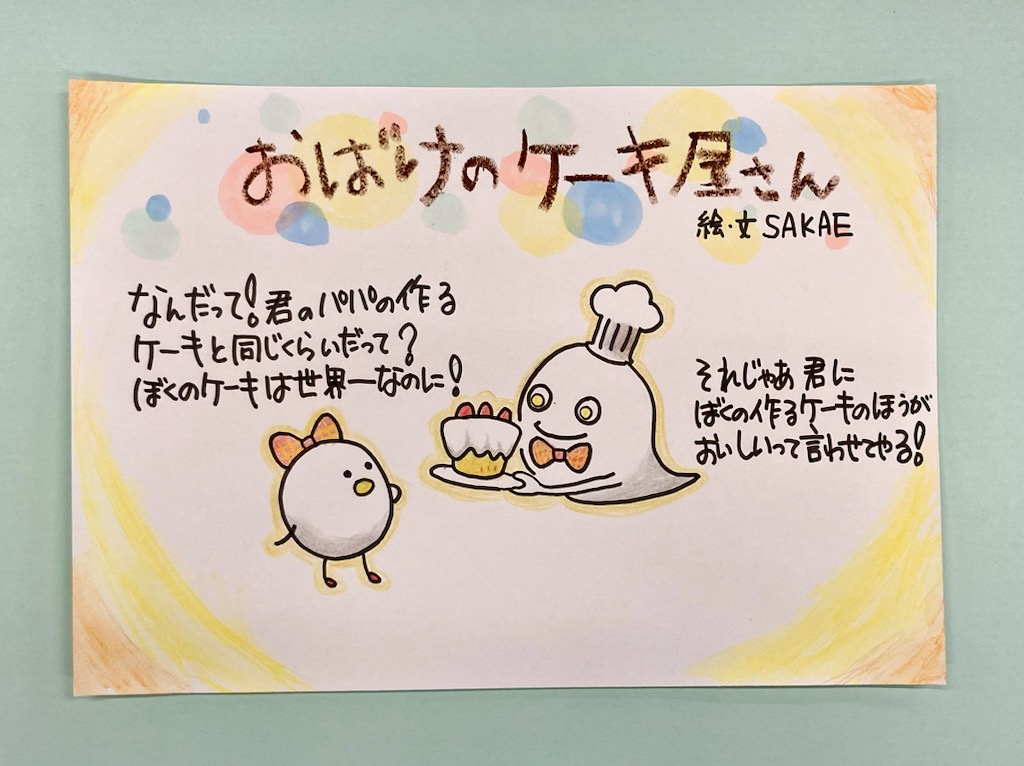 おばけのケーキ屋さん
絵・文 SAKAE
なんだって！君のパパの作る
ケーキと同じくらいだって？
ぼくのケーキは世界一なのに！
それじゃあ君に
ぼくの作るケーキのほうが
おいしいって言わせてやる！